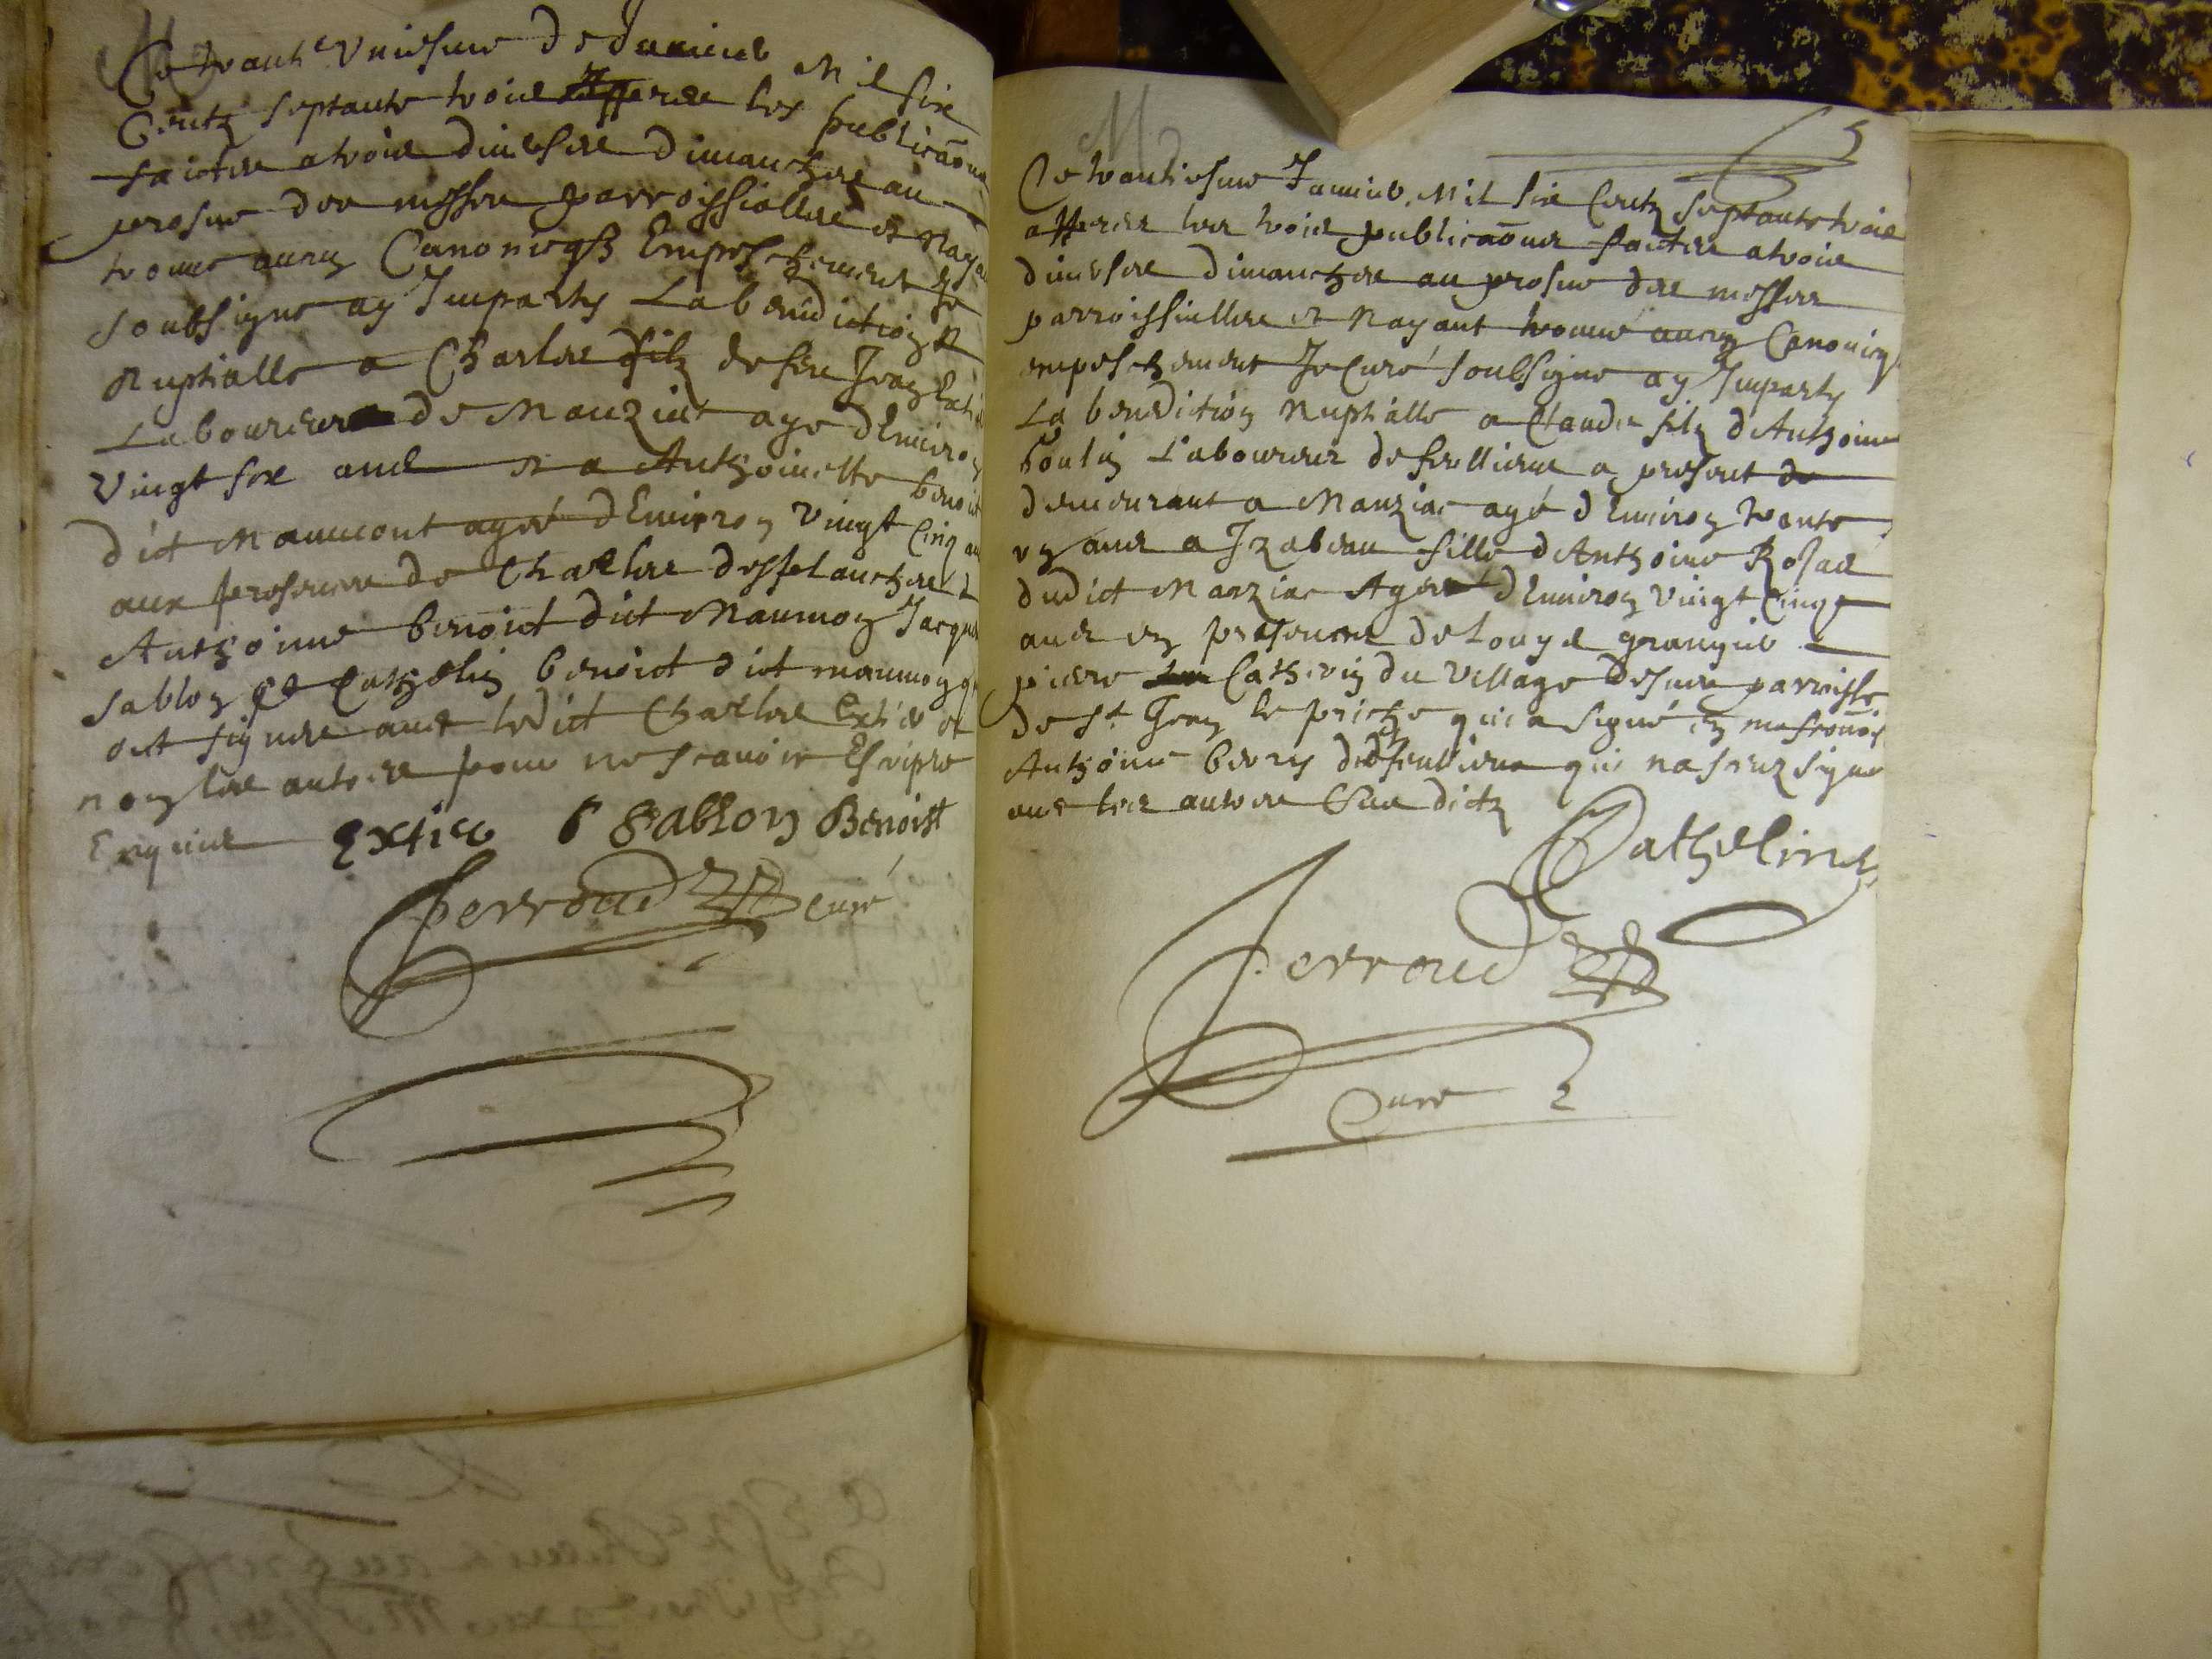 M
Ce trante Vniesme de Januier Mil six
Centz septante trois Apres les publicaõns
faictes a trois diuerses dimanches au
prosne des messes parroissialles et Nay
trouue aucun Canonicq Empeschement Je
soubsigne ay Imparty La benediction
Nuptialle a Charles filz de feu Jean Extier
Laboureur de Manziat age dEnuiron
Vingt six ans et a Anthoinette benoict
dict Maumont agée dEnuiron Vingt Cinq ans
aux presences de Charles desplanches
Anthoinne benoict dict Maumon Jacques
sablon et Cathelin benoict dict maumon
ont signes auec ledict Charles Extier et
non les autres pour ne scauoir Escripre
Enquis Extier Sablon Benoist
Perroud curé
M
Ce trantiesme Januier Mil six Centz septante trois
appres les trois publicaõnes faictes a trois
diuerses dimanches au prosne des messes
parroissielles et Nayant trouué aucun Canonicq
empeschement Je Curé soubsigne ay Imparty
La benediction Nuptialle a Claude filz dAnthoine
Poulin Laboureur de feullens a present
demourant a Manziac agé dEnuiron trante
vn ans a Izabeau fille dAnthoine Rosad
dudict Manziac Agee dEnuiron Vingt Cinq
ans en presences de Louys grangier
piere Cathein du Village parroisse
de St Jean le priche qui a signé
Anthoine qui na sceuz signe
auec les autres sus dictz
Cathelin
Perroud
Curé